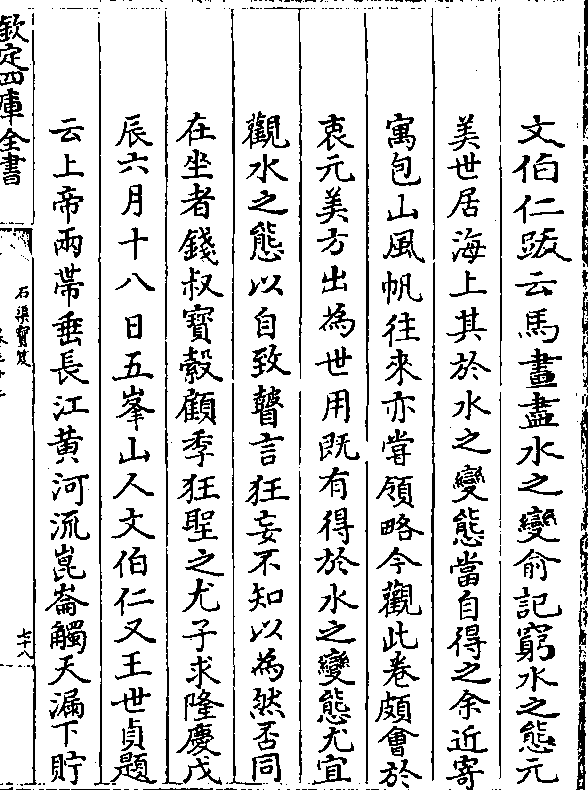 文伯仁跋云馬畫盡水之變俞記窮水之態元
美世居海上其於水之變態當自得之余近寄
寓包山風帆往來亦嘗領略今觀此卷頗會於
衷元美方出為世用既有得於水之變態尤宜
觀水之態以自致瞽言狂妄不知以為然否同
在坐者錢叔寶榖顧季狂聖之尤子求隆慶戊
辰六月十八日五峯山人文伯仁又王世貞題
云上帝兩帶垂長江黄河流崑崙觸天漏下貯
欽定四庫全書
石渠寶笈
七十八